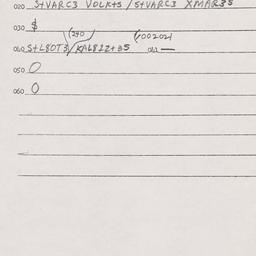 020 S+VARC3 VOLK+S / S+VARC3 XMAR35
030 $
(240 (002021
040 S+L80T3/KAL812+35 041 —
050 0
060 0